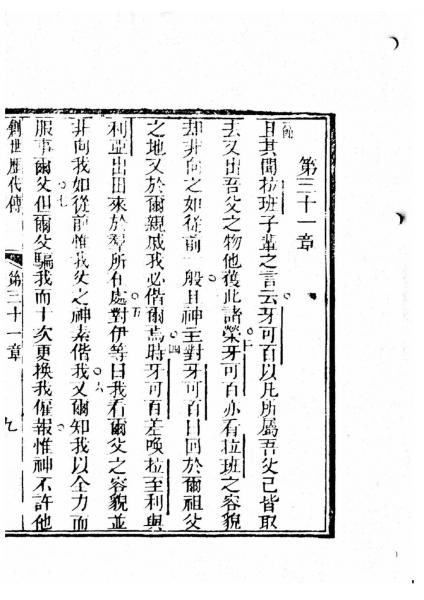 第三十一章
節且其聞拉班子輩之言云牙可百以凡所屬吾父已皆取
去又出吾父之物他獲此諸榮○二牙可百亦看拉班之容貌
却非向之如從前一般○且神主對牙可百曰回於爾祖父
之地又於爾親戚我必偕爾焉○四時牙可百差喚拉至利與
利亞出田來於羣所在處○五對伊等曰我看爾父之容貌並
非向我如從前惟我父之神素偕我○六又爾知我以全力而
服事爾父○七但爾父騙我而十次更換我僱報○惟神不許他
創世歷代傳 第三十一章 九